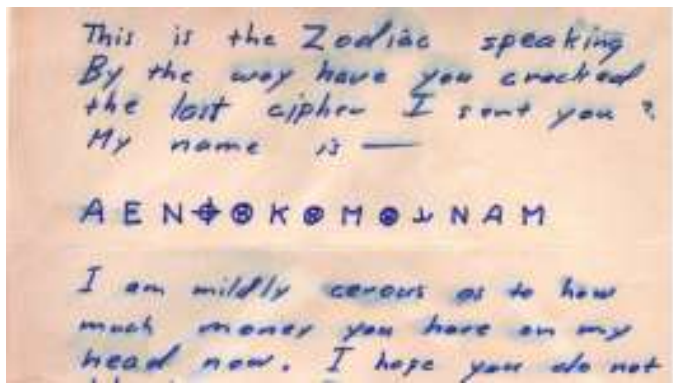 This is the Zodiac speaking
By the way have you cracked
the last cipher I sent you ?
My name is —
A E N ⌖ ⊗ K ⊗ M ⊗ ⅃ N A M
I am mildly cerous as to how
much money you have on my
head now. I hope you do not